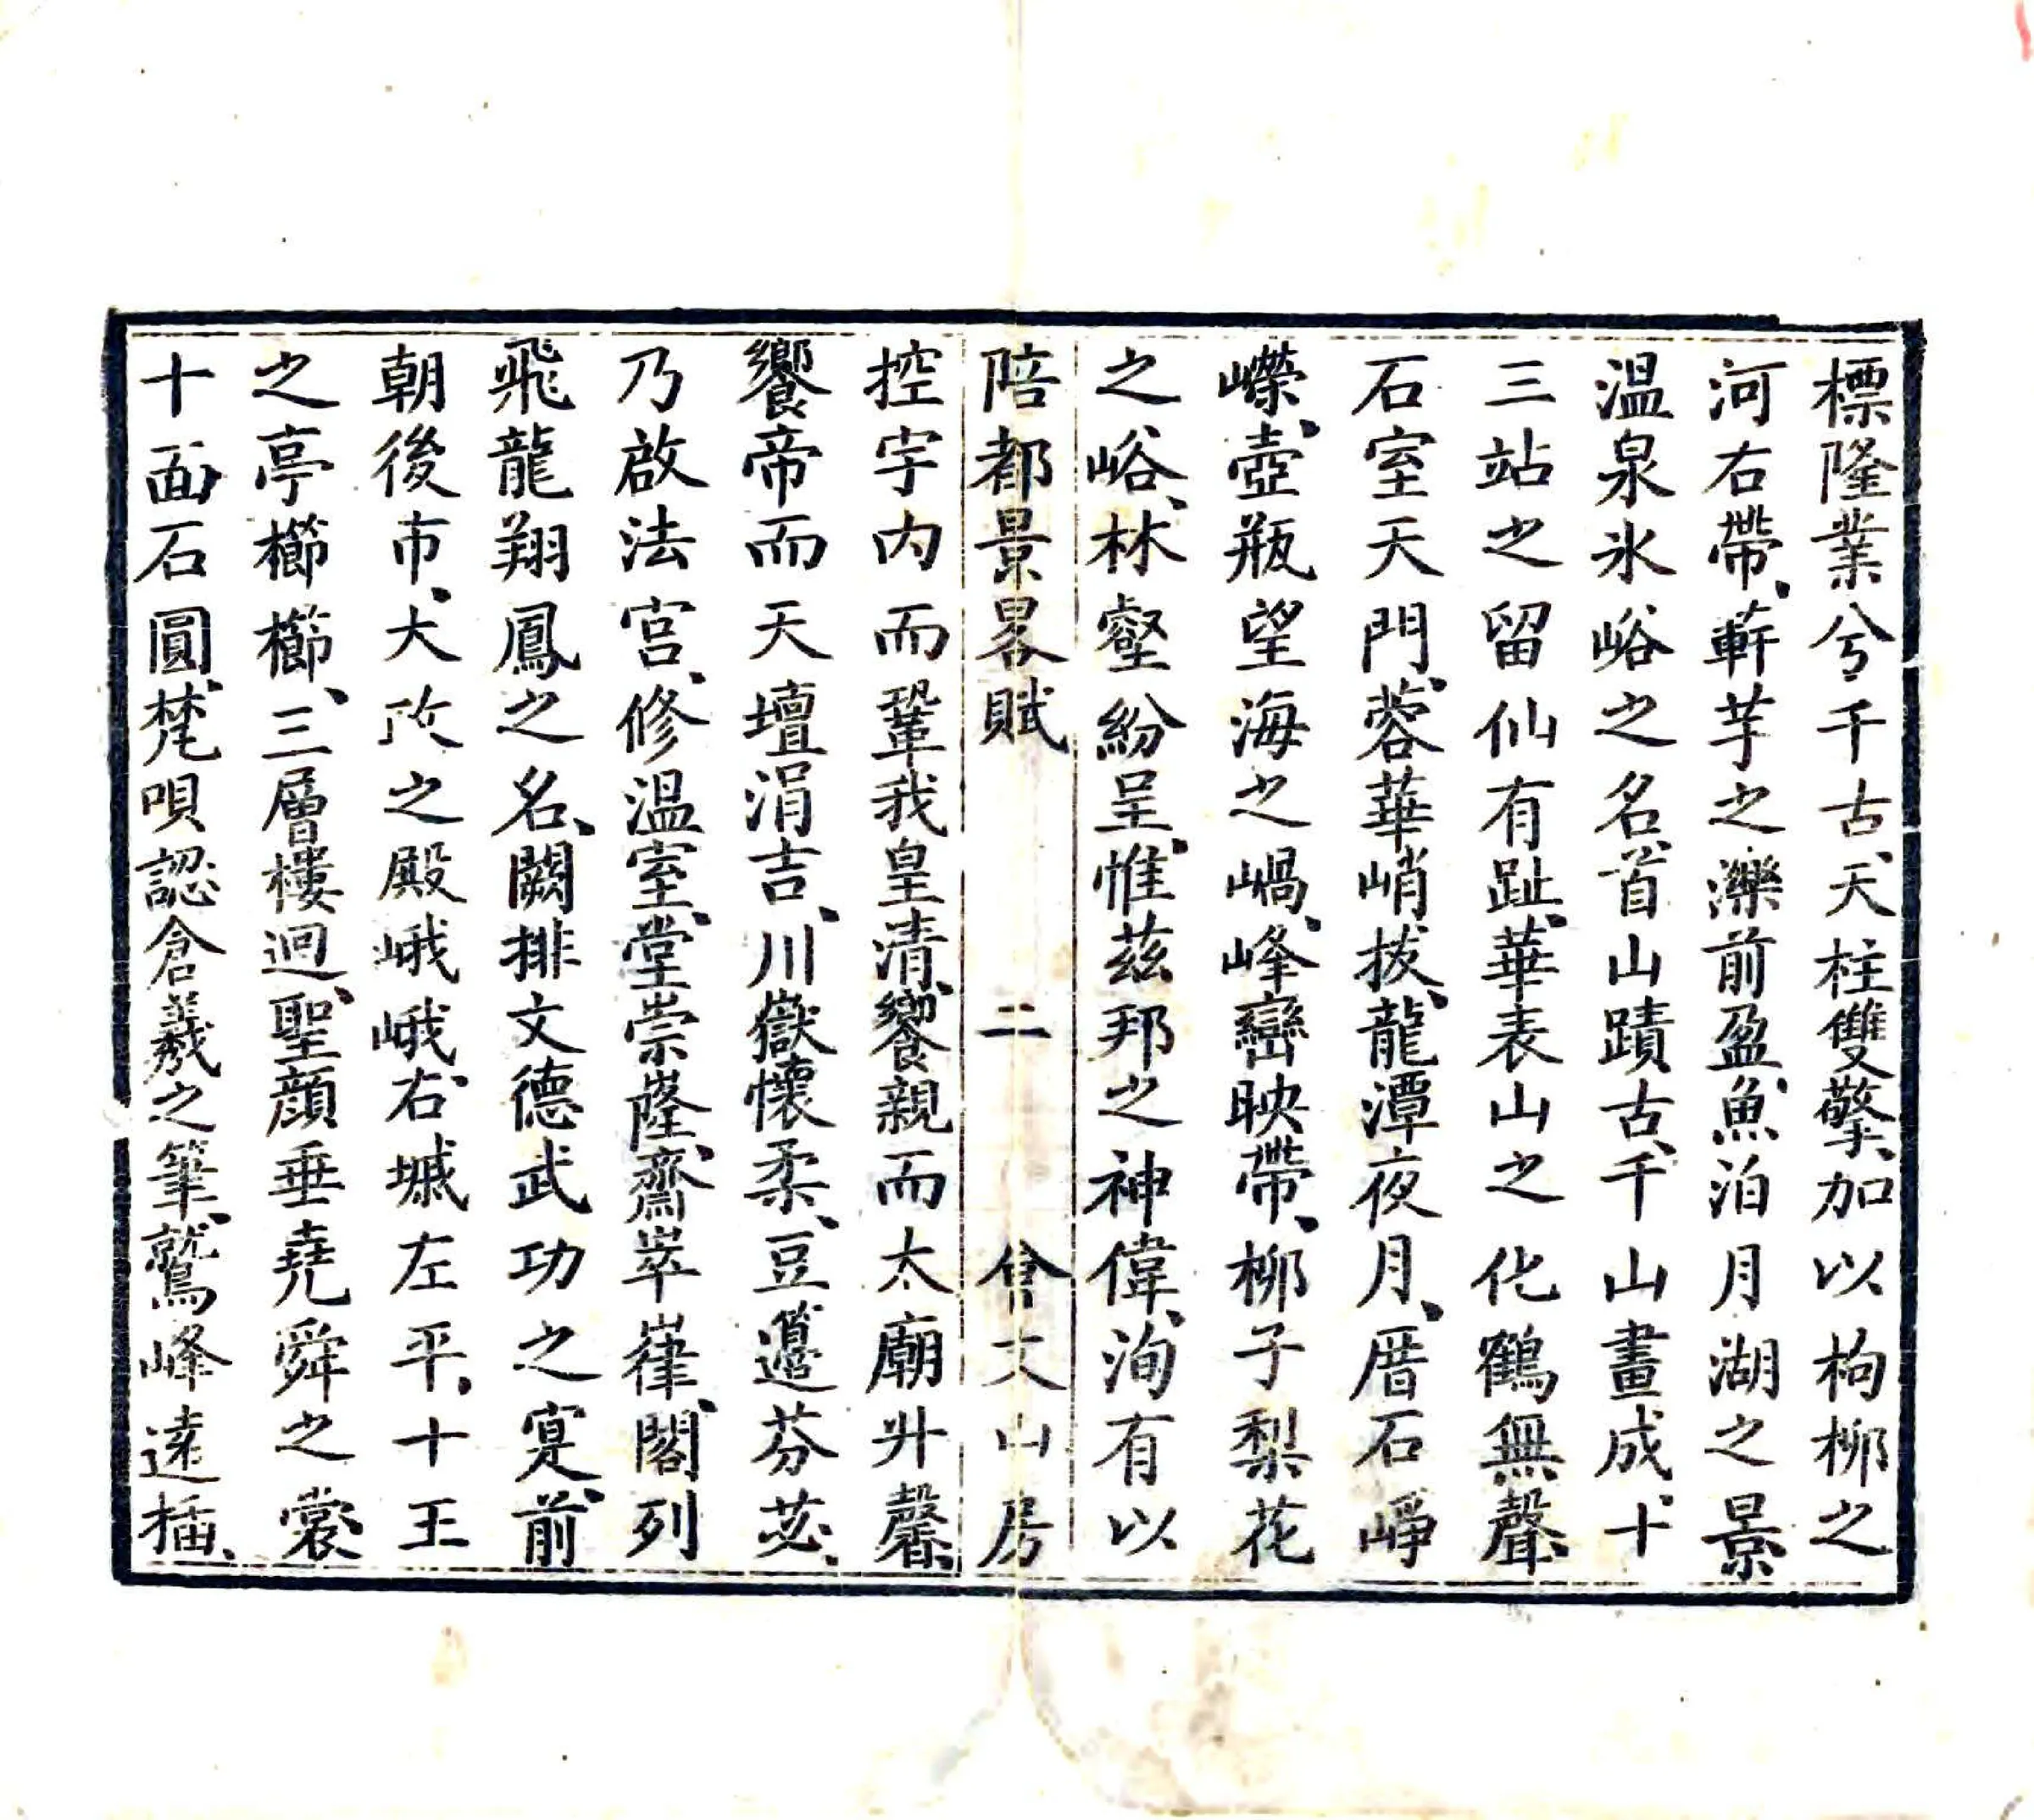 標隆業兮千古、天柱雙擎、加以枸柳之
河右帶、蓒芋之濼前盈、魚泊月湖之景
溫泉氷峪之名、首山蹟古、千山畫成、十
三站之留仙有趾、華表山之化鶴無聲、
石室天門、蓉華峭拔、龍潭夜月、厝石崢
嶸、壺瓶望海之嵎、峰巒映帶、柳子梨花
之峪、林壑紛呈、惟茲邦之神偉、洵有以
陪都景畧賦　二　會文山房
控宇内而鞏我皇清、饗親而太廟升馨、
饗帝而天壇涓吉、川嶽懷柔、豆籩芬苾、
乃啟法宮、修溫室、堂崇隆、齋崒嵂、閣列
飛龍翔鳳之名、闕排文德武功之寔、前
朝後市、大政之殿峨峨、右墄左平、十王
之亭櫛櫛、三層樓迥、聖顔垂堯舜之裳
十面石圓、梵唄認倉羲之筆、鷲峰遠插、